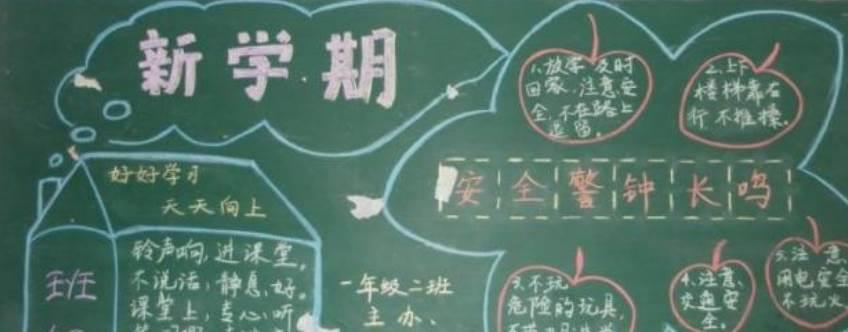 新学期
好好学习
天天向上
铃声响,进课堂,
不说话,静息好。
课堂上,专心听
一年级二班
主办、
1、放学及时
回家,注意安
全,不在路上
逗留。
2、上下
楼梯靠右
行,不推操。
安全警钟长鸣
3、不玩
危险的玩具,
4、注意
交通安
全。
5、注意
用电安全
不玩火